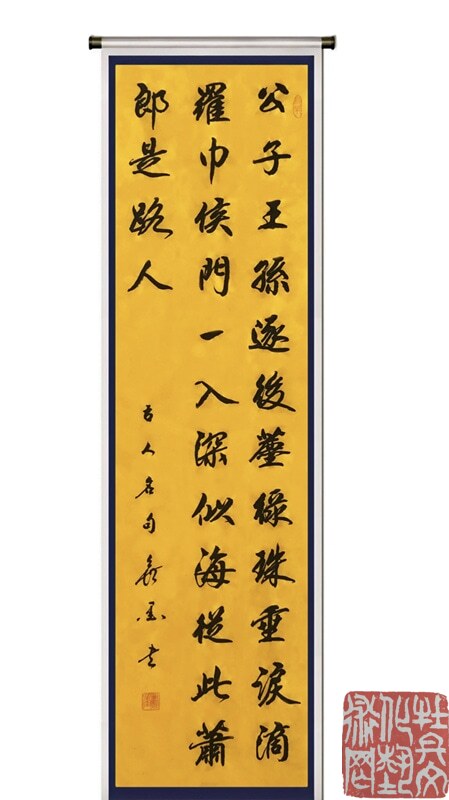 公子王孫逐後塵綠珠垂淚滴
羅巾侯門一入深似海從此蕭
郎是路人
古人名句